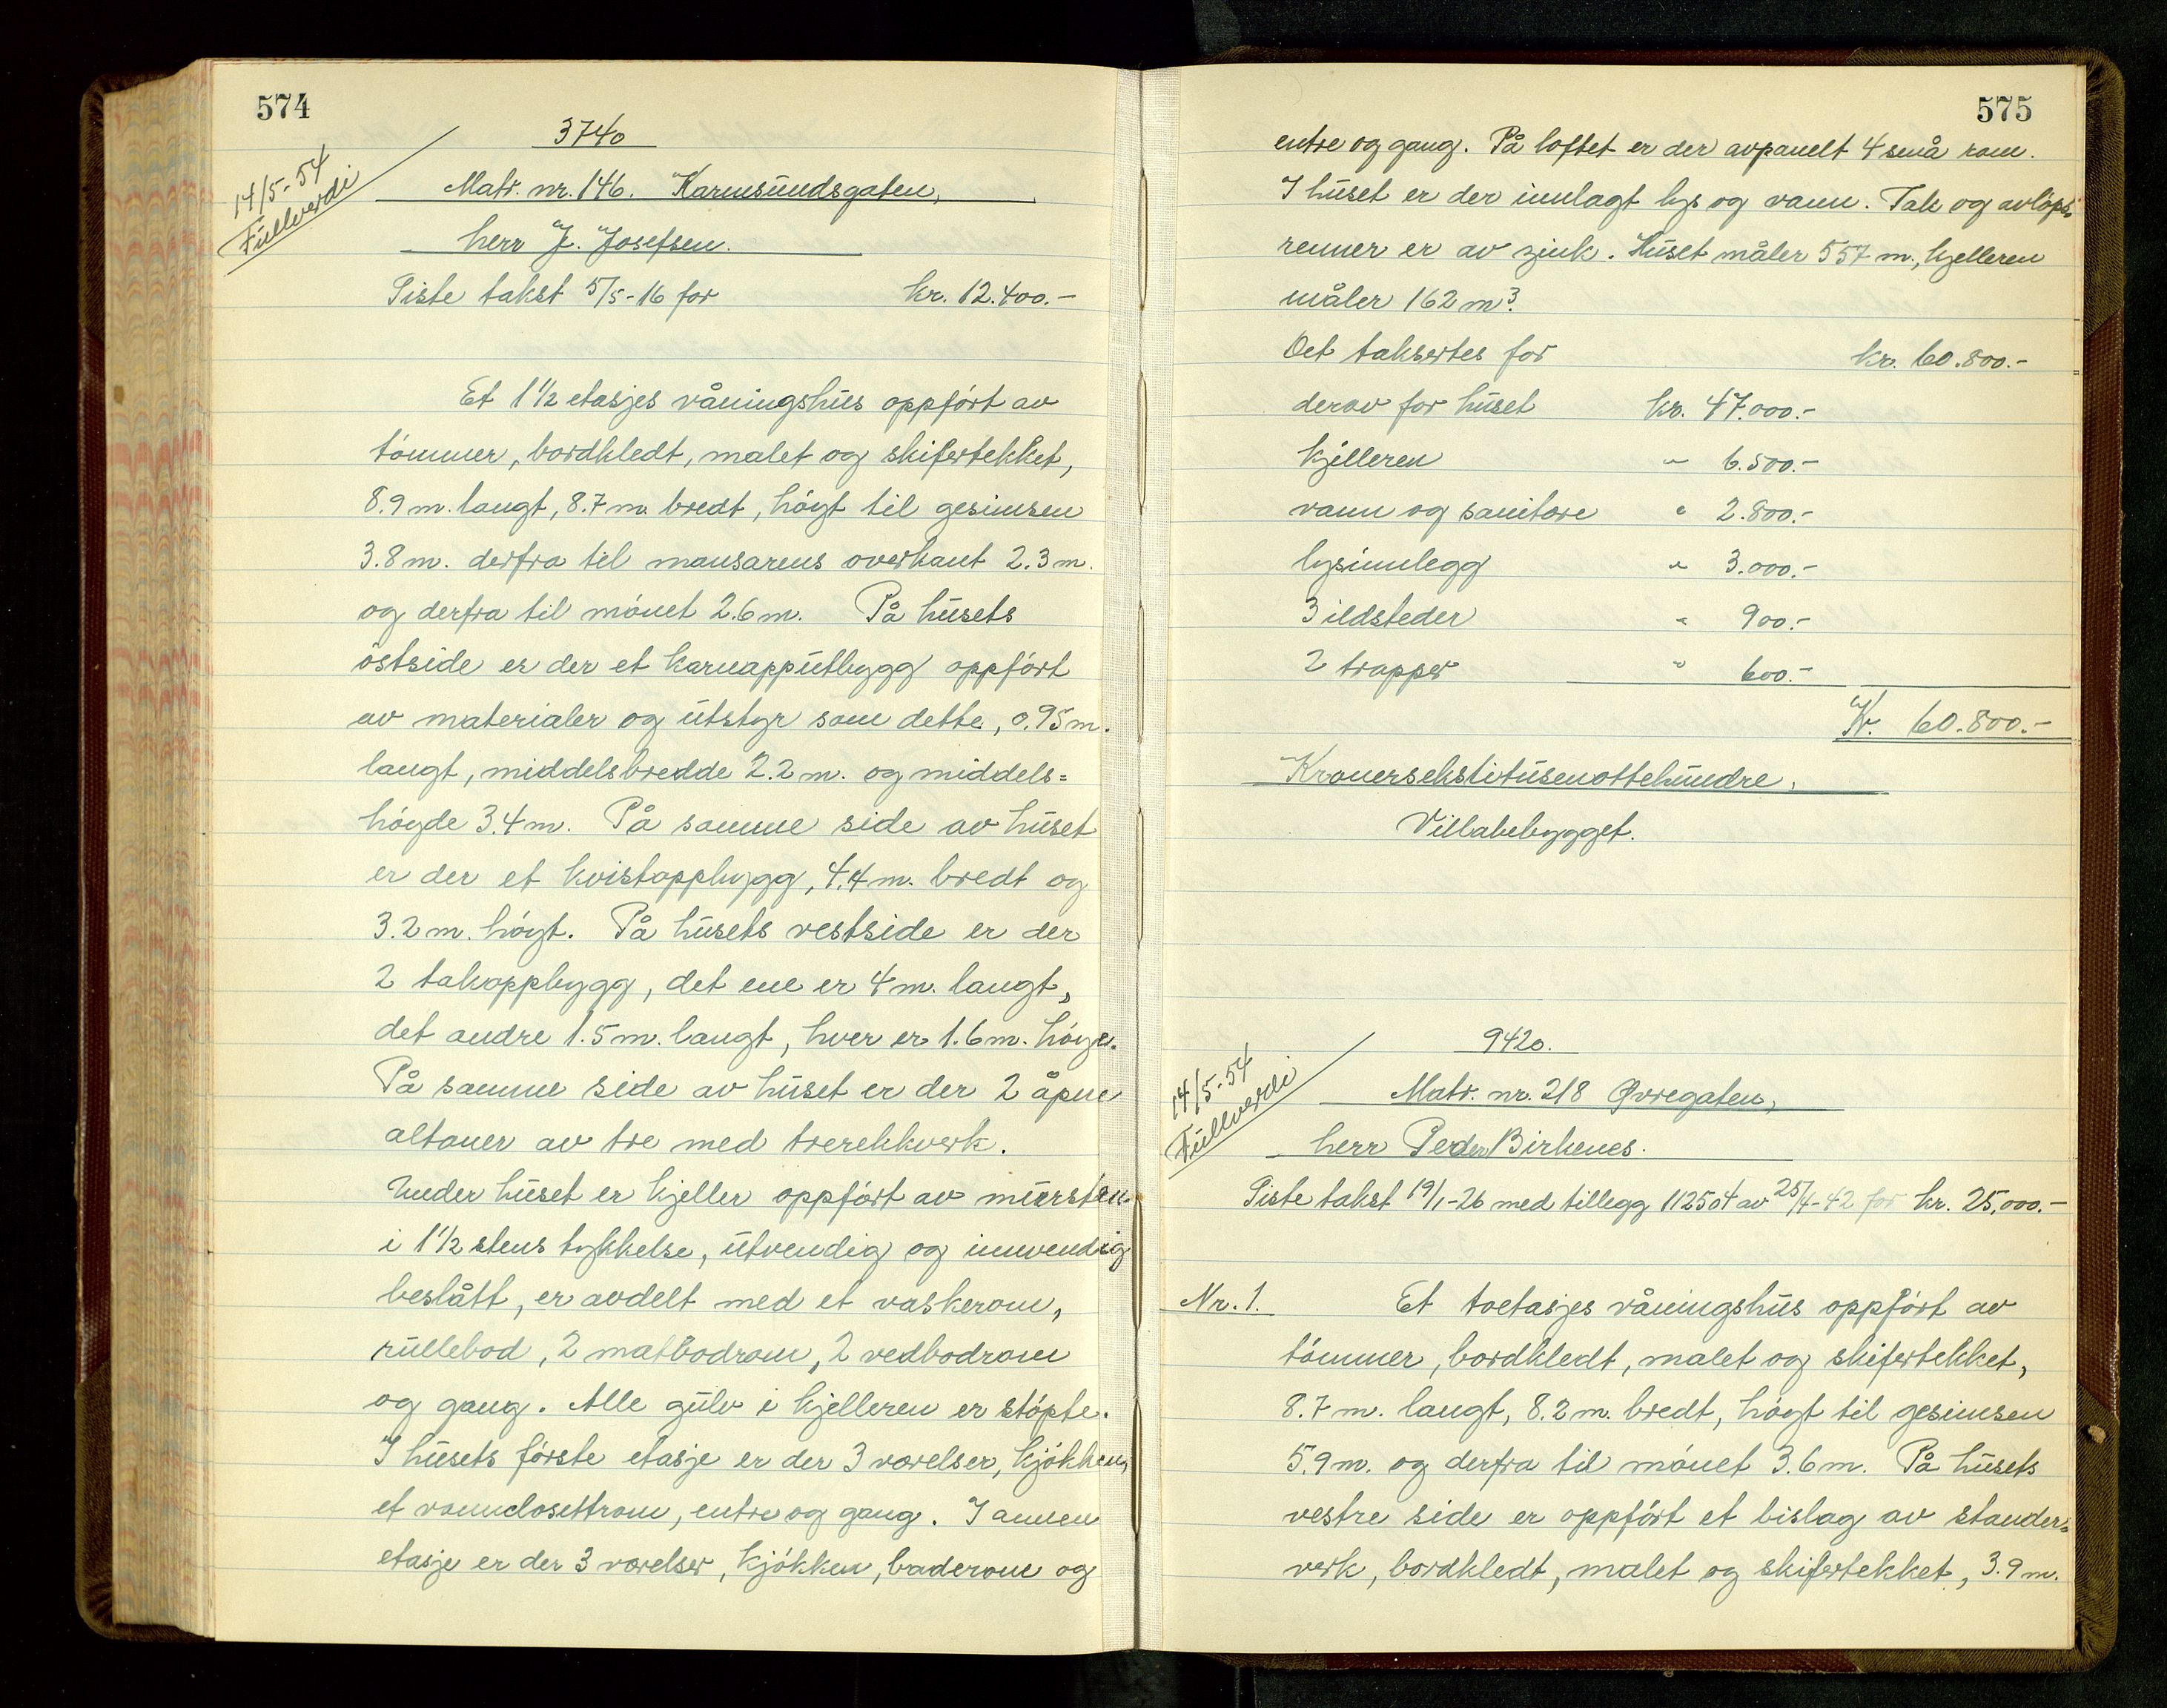 574
3740
14/5-54
Fullverdi
Matr. nr. 146. Karmsundsgaten,
herr J. Josefsen.
Siste takst 5/5-16 for kr. 12.400.-
Et 1 1/2 etasjes våningshus oppført av
tømmer, bordkledt, malet og skifertekket,
8.9 m. langt, 8.7 m. bredt, høgt til gesimsen
3.8 m. derfra til mansarens overkant 2.3 m.
og derfra til mønet 2.6 m. På husets
østside er der et karnapputbygg oppført
av materialer og utstyr som dette, 0.95 m.
langt, middelsbredde 2.2 m. og middels=
høgde 3.4 m. På samme side av huset
er der et kvistoppbygg, 4.4 m. bredt og
3.2 m. høgt. På husets vestside er der
2 takoppbygg, det ene er 4 m. langt,
det andre 1.5 m. langt, hver er 1.6 m. høge.
På samme side av huset er der 2 åpne
altaner av tre med trerekkverk.
Under huset er kjeller oppført av mursten
i 1 1/2 stens tykkelse, utvendig og innvendig
beslått, er avdelt med et vaskerom,
rullebod, 2 matbodrom, 2 vedbodrom
og gang. Alle gulv i kjelleren er støpte.
I husets første etasje er der 3 værelser, kjøkken,
et vannclosettrom, entre og gang. I annen
etasje er der 3 værelser, kjøkken, baderom og
575
entre og gang. På loftet er der avpanelt 4 små rom.
I huset er der innlagt lys og vann. Tak og avløps=
renner er av zink. Huset måler 557 m., kjelleren
måler 162 m³.
Det taksertes for kr. 60.800.-
derav for huset kr. 47.000.-
kjelleren " 6.500.-
vann og sanitære " 2.800.-
lysinnlegg " 3.000.-
3 ildsteder " 900.-
2 trapper " 600.-
Kr. 60.800.-
Kronersekstitusenottehundre,
Villabebygget.
9420.
14/5-54
Fullverdi
Matr. nr. 218 Øvregaten,
herr Peder Birkenes.
Siste takst 19/1-26 med tillegg 11250 4 av 25/4-42 for kr. 25.000.-
Nr. 1. Et toetasjes våningshus oppført av
tømmer, bordkledt, malet og skifertekket,
8.7 m. langt, 8.2 m. bredt, høgt til gesimsen
5.9 m. og derfra til mønet 3.6 m. På husets
vestre side er oppført et bislag av stander=
verk, bordkledt, malet og skifertekket, 3.9 m.